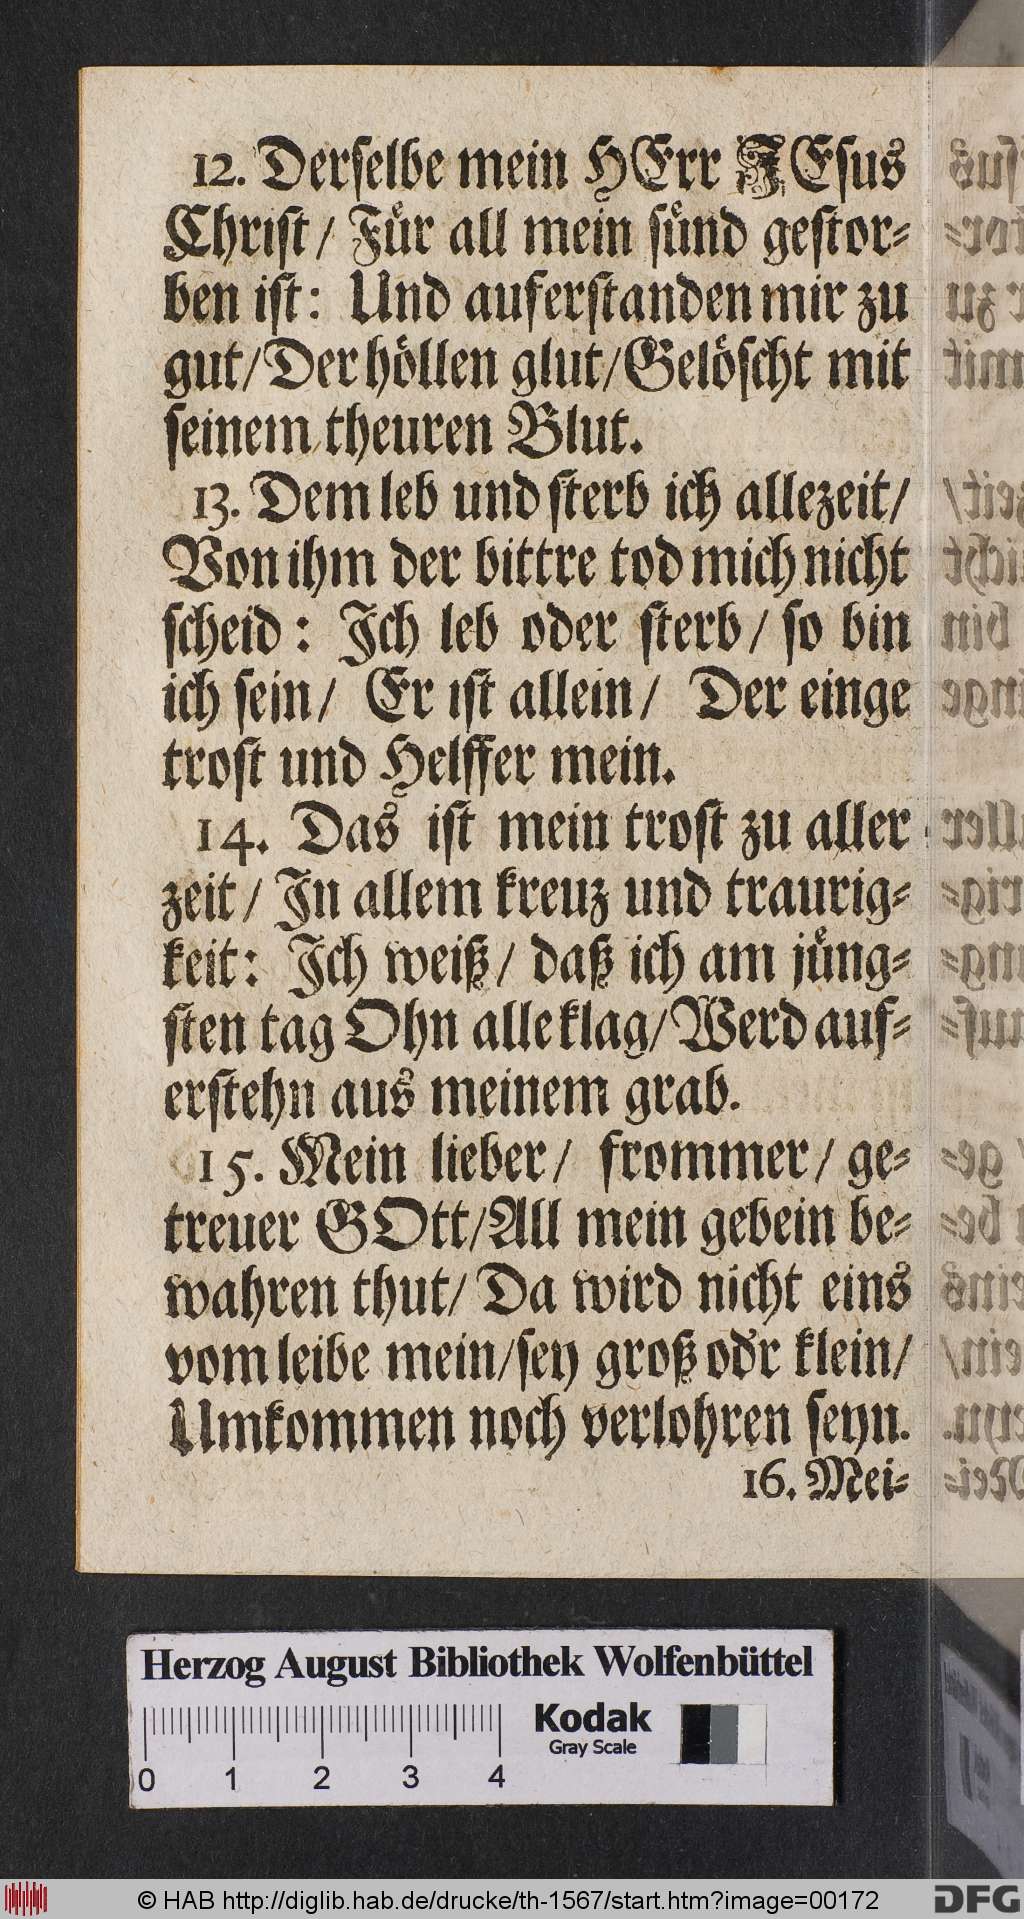 12. Derſelbe mein HErr JEſus
Chriſt / Fuͤr all mein ſuͤnd geſtor-
ben iſt: Und auferſtanden mir zu
gut / Der höllen glut / Gelöſcht mit
ſeinem theuren Blut.
13. Dem leb und ſterb ich allezeit /
Von ihm der bittre tod mich nicht
ſcheid: Ich leb oder ſterb / ſo bin
ich ſein / Er iſt allein / Der einge
troſt und Helffer mein.
14. Das iſt mein troſt zu aller
zeit / In allem kreuz und traurig-
keit: Ich weiß / daß ich am juͤng-
ſten tag Ohn alle klag / Werd auf-
erſtehn aus meinem grab.
15. Mein lieber / frommer / ge-
treuer GOtt / All mein gebein be-
wahren thut / Da wird nicht eins
vom leibe mein / ſey groß od'r klein /
Umkommen noch verlohren ſeyn.
16. Mei-
Herzog August Bibliothek Wolfenbüttel
Kodak
Gray Scale
0 1 2 3 4
© HAB http://diglib.hab.de/drucke/th-1567/start.htm?image=00172
DFG